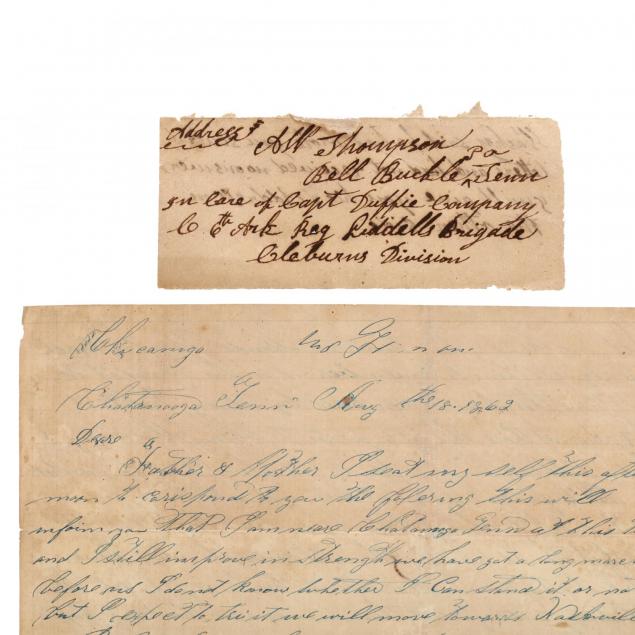 Address
AW Thompson
Bell Buckle Po Tenn
in Care of Capt Duffie Company
C 6th Ark Reg Liddells Brigade
Cleburns Division
Chicamigo
Chatanooga Tenn Aug the 18. 1862
Deare
Father & Mother I seat my self this after
noon to corispond to you the follering this will
inform you that I am neare Chatanooga Tenn at this
and I still improve in strength we have got a long marc
before us I do not know whether I can stand it or no
but I expect to try it we will move towards Nashvill